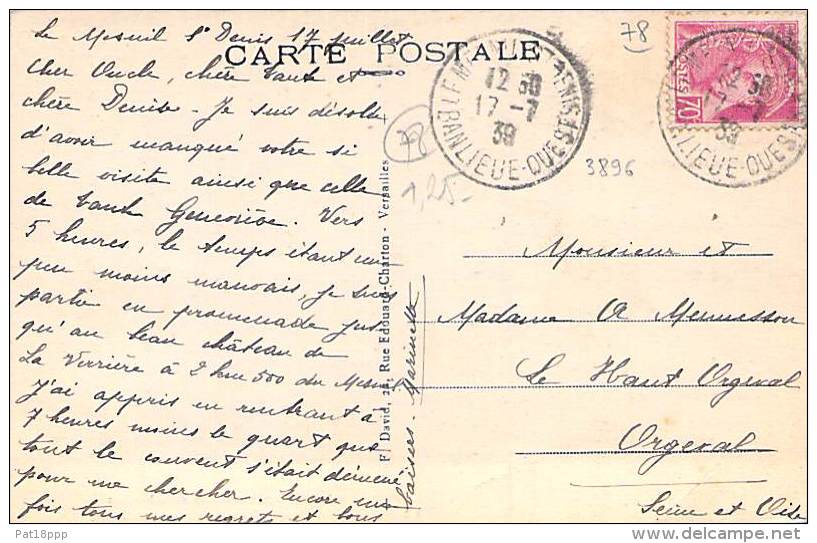 Le Mesnil St Denis 17 juillet
CARTE POSTALE
Cher Oncle, chère Tante et
chère Denise - Je suis désolée
d'avoir manqué votre si
belle visite ainsi que celle
de tante Geneviève. Vers
5 heures, le temps étant un
peu moins mauvais, je suis
partie en promenade jus
qu'au beau château de
La Verrière à 2 km 500 du Mesnil
J'ai appris en rentrant à
7 heures moins le quart que
tout le couvent s'était démené
pour me chercher. Encore une
fois tous mes regrets et tous
baisers. Marinette
F. David, Rue Edouard-Charton - Versailles
78
1,25-
78
3896
LE MESNIL-ST DENIS
12 30
17-7
39
BANLIEUE-OUEST
POSTES
70c
12 30
-7
39
LIEUE-OUEST
Monsieur et
Madame A Mennesson
Le Haut Orgeval
Orgeval
Seine et Oise
Pat18ppp
delcampe.net